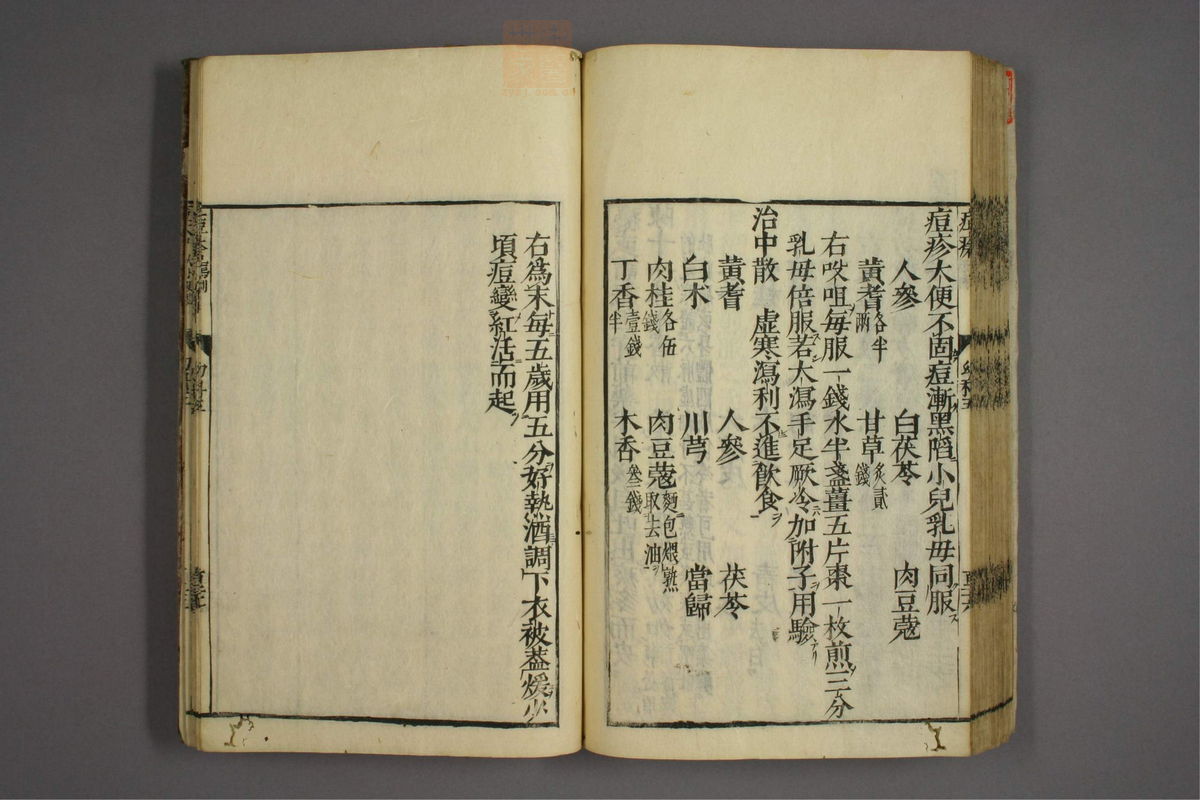 痘疹大便不固痘漸黑陷小兒乳母同服
人參 白茯苓 肉豆蔻
黃耆各半兩 甘草炙貳錢
右㕮咀毎服一錢水半盞薑五片棗一枚煎三分
乳母倍服若大瀉手足厥冷加附子用驗
治中散 虛寒瀉利不進飲食
黃耆 人參 茯苓
白朮 川芎 當歸
肉桂各伍錢 肉豆蔻麵包煨熟取去油
丁香壹錢半 木香參錢
右為末毎五歲用五分好熱酒調下衣被蓋煖少
頃痘變紅活而起